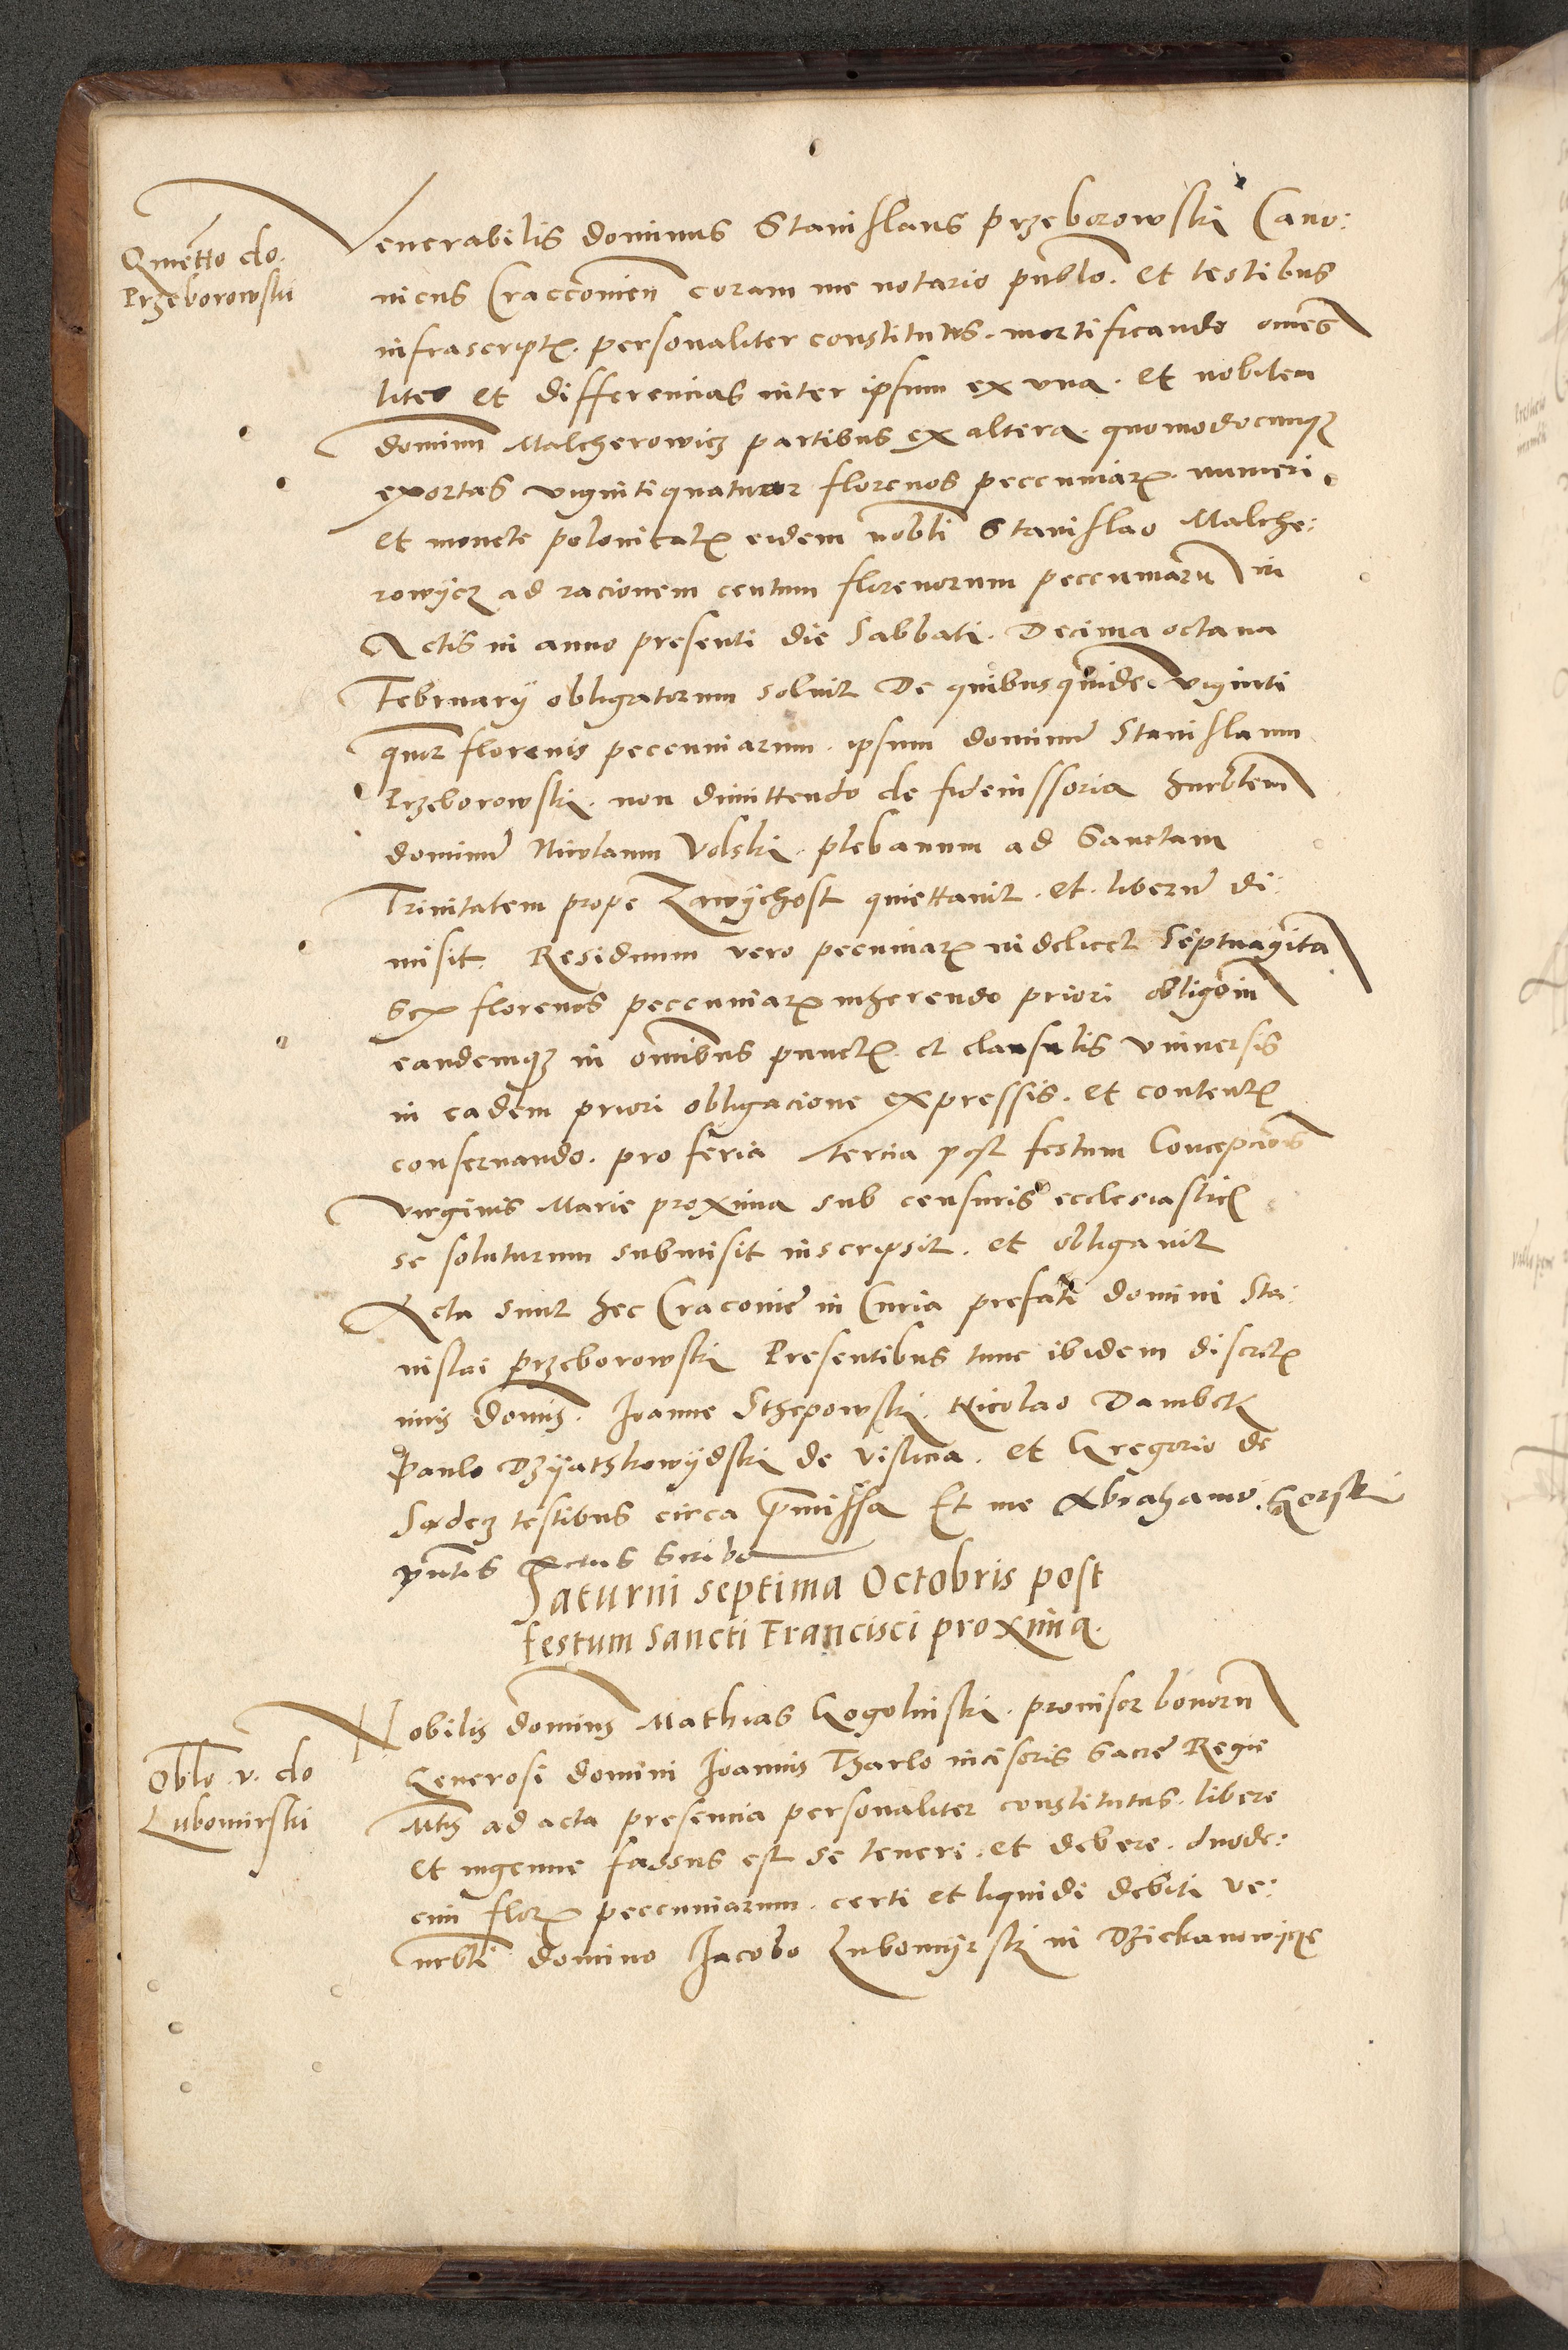 Quietto do.
Przeborowski
Venerabilis dominus Stanislaus Przeborowski Cano:
nicus Craccovien coram me notario publo. et testibus
infrascriptis. personaliter constitutus. mortificando omnes
lites et differencias inter ipsum ex una. et nobilem
dominum Malcherowicz partibus ex altera. quomodocunque
exortas vigintiquatuor florenos peccuniarum. numeri
et monete polonicalis eidem nobli Stanislao Malche:
rowycz ad racionem centum florenorum peccuniarum in
Actis in anno presenti die Sabbati. Decima octava
February obligatorum solvit De quibusquidem viginti
quor florenis peccuniarum. ipsum dominum Stanislaum
Przeborowski. non dimittendo de fideiussoria
dominum Nicolaum Volski. plebanum ad Sanctam
Trinitatem prope Zawychost quiettavit. et. liberum di:
misit. Residuum vero pecuniarum videlicet Septuaginta
sex florenos peccuniarum inherendo priori obligoni
eandemque in omnibus punctis et clausulis universis
in eadem priori obligacione expressis. et contentis
conservando. pro feria tercia post festum Concepcionis
virginis Marie proxima sub censuris ecclesiasticis
se soluturum submisit inscripsit. et obligavit
Acta sunt hec Cracovie in Curia prefati domini Sta:
nislai Przeborowski Presentibus tunc ibidem discretis
viris dominis. Joanne Sthepowski. Nicolao Dambek
Paulo Dzyathkowydski de Vislicia. et Gregorio de
Sadecz testibus circa premissa Et me Abrahamo. Gorski
pntis Actus Scriba
Saturni septima Octobris post
festum Sancti Francisci proxima.
Nobilis dominus Mathias Gogolinski. provisor bonorum
Oblo. v. do
Lubomirski
Generosi domini Joannis Tharlo incisoris Sacre Regie
Mtis ad acta presencia personaliter constitutus. libere
et ingenue fassus est se teneri. et debere. duode:
cim flor. peccuniarum. certi et liquidi debiti ve:
nrbli domino Jacobo Lubomyrski in Dziekanowycze